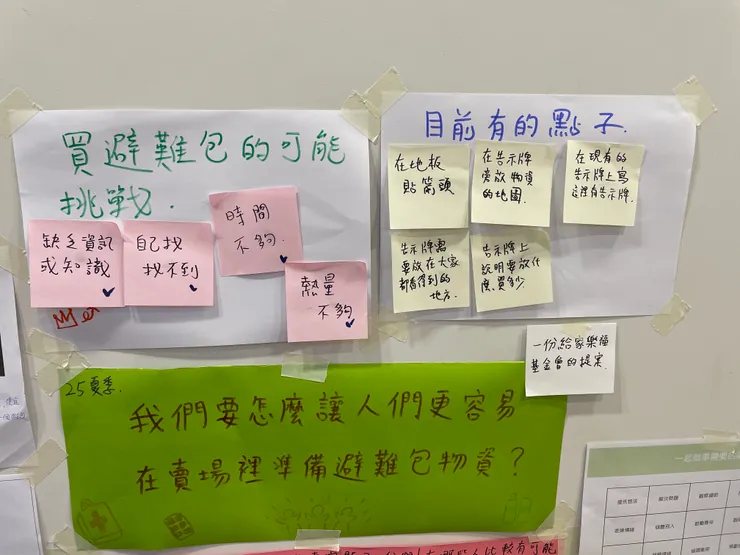 買避難包的可能
挑戰.
時間
不夠.
缺乏資訊
或知識
自己找
找不到
熱量
不夠
目前有的點子.
在地板
貼箭頭
在告示牌
旁放物資
的地圖.
在現有的
告示牌上寫
這裡有告示牌.
告示牌需
要放在大家
都看得到的
地方.
告示牌上
說明要放什
麼,買多少
一份給家樂福
基金會的提案.
25夏季.
我們要怎麼讓人們更容易
在賣場裡準備避難包物資?